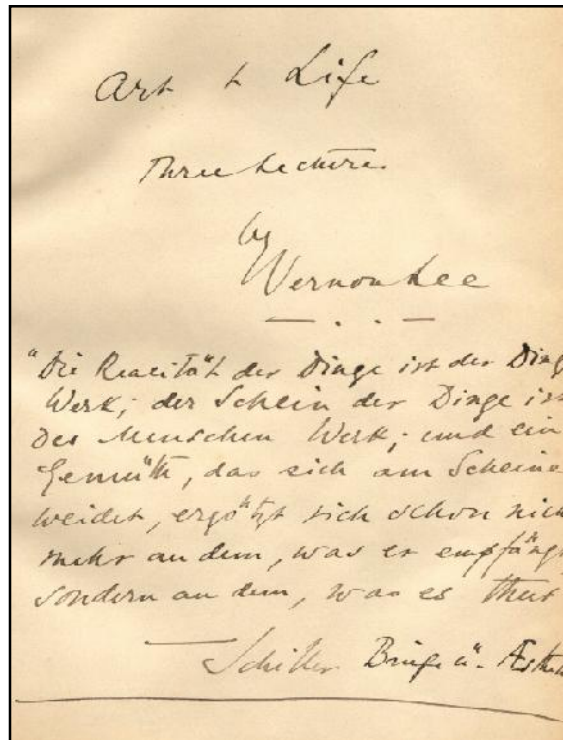 Art & Life
Three Lectures
by
Vernon Lee
"Die Realität der Dinge ist der Ding
Werk; der Schein der Dinge ist
des Menschen Werk; und ein
Gemüth, das sich am Scheine
weidet, ergötzt sich schon nich
mehr an dem, was es empfängt
sondern an dem, was es thut
Schiller Briefe ü. Æsth